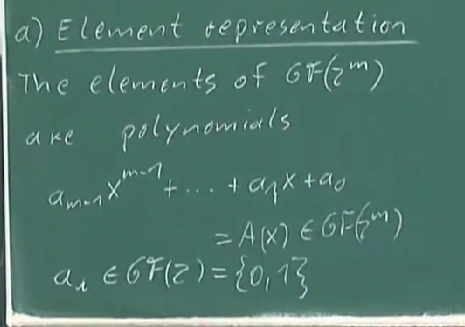 a) Element representation
The elements of GF(2^m)
are polynomials
a_{m-1}x^{m-1} + ... + a_1x + a_0
= A(x) ∈ GF(2^m)
a_i ∈ GF(2) = {0,1}